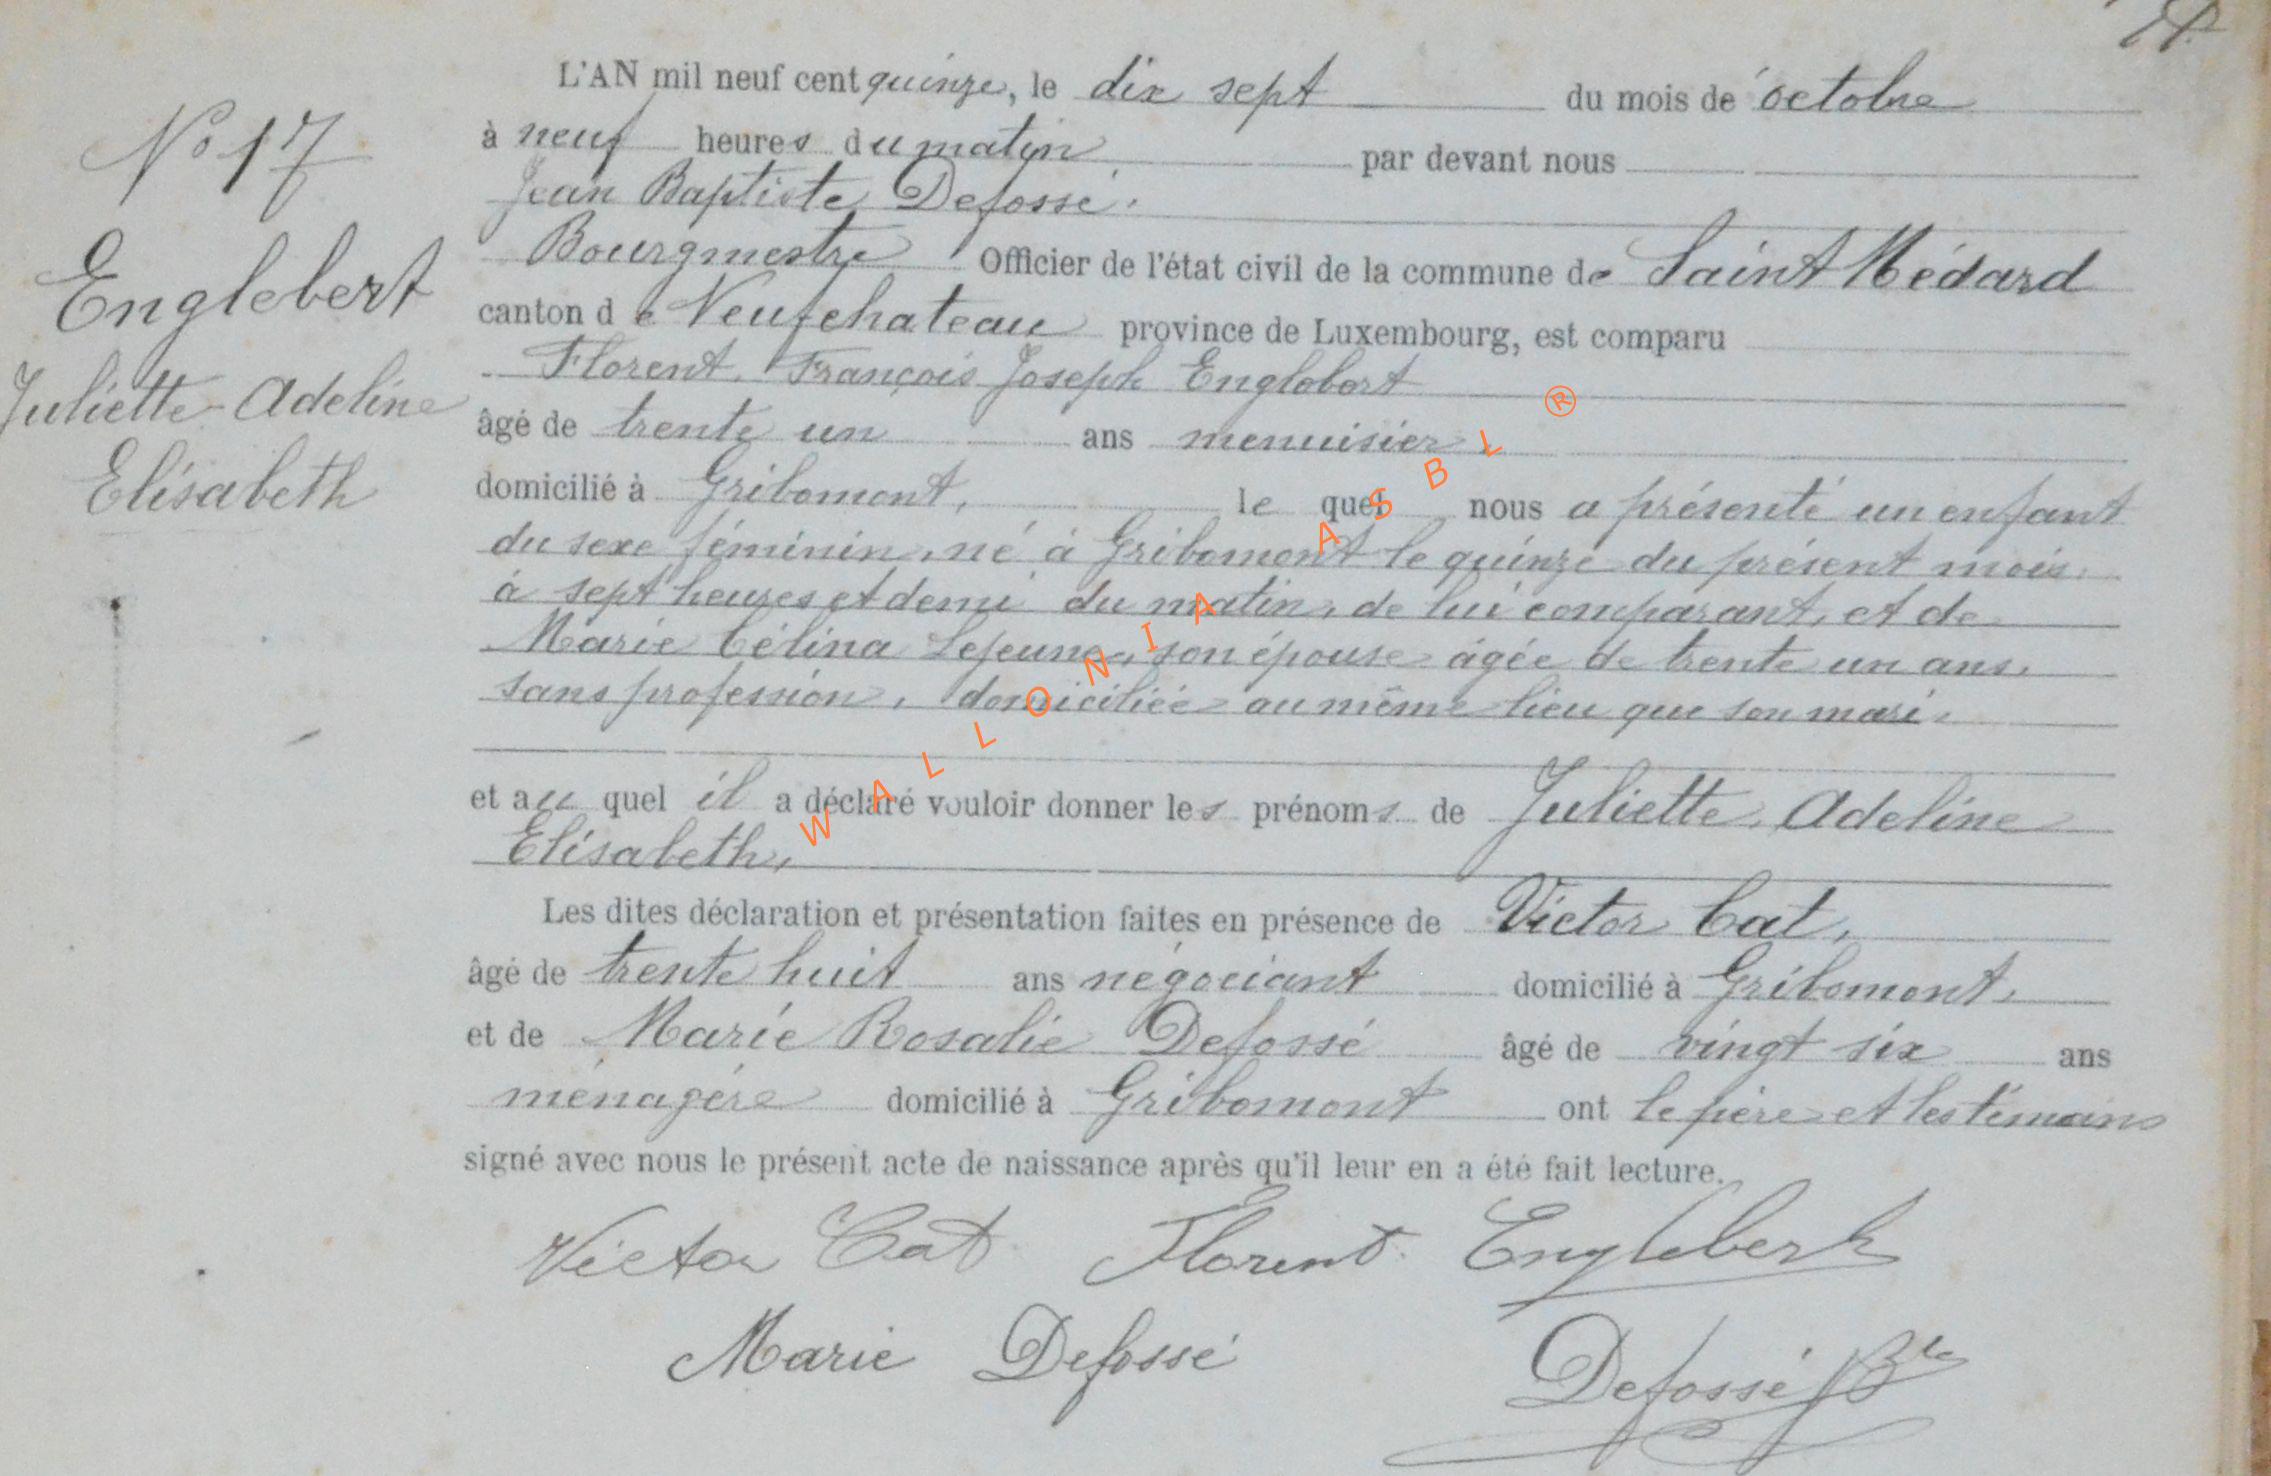 L'AN mil neuf cent quinze, le dix sept du mois de octobre
N° 17
à neuf heures du matin par devant nous
Jean Baptiste Defossé.
Bourgmestre Officier de l'état civil de la commune de Saint Médard
Englebert
canton de Neufchateau province de Luxembourg, est comparu
Florent, François Joseph Englebert
Juliette Adeline
âgé de trente un ans menuisier
Elisabeth
domicilié à Gribomont, le quel nous a présenté un enfant
du sexe féminin, né à Gribomont le quinze du présent mois
à sept heures et demi du matin, de lui comparant, et de
Marie Célina Lejeune, son épouse âgée de trente un ans,
sans profession, domiciliée au même lieu que son mari.
et au quel il a déclaré vouloir donner les prénoms de Juliette, Adeline
Elisabeth,
Les dites déclaration et présentation faites en présence de Victor Cat,
âgé de trente huit ans négociant domicilié à Gribomont,
et de Marie Rosalie Defossé âgé de vingt six ans
ménagère domicilié à Gribomont ont le père et les témoins
signé avec nous le présent acte de naissance après qu'il leur en a été fait lecture.
Victor Cat Florent Englebert
Marie Defossé Defossé JBte
WALLONIA ASBL ®